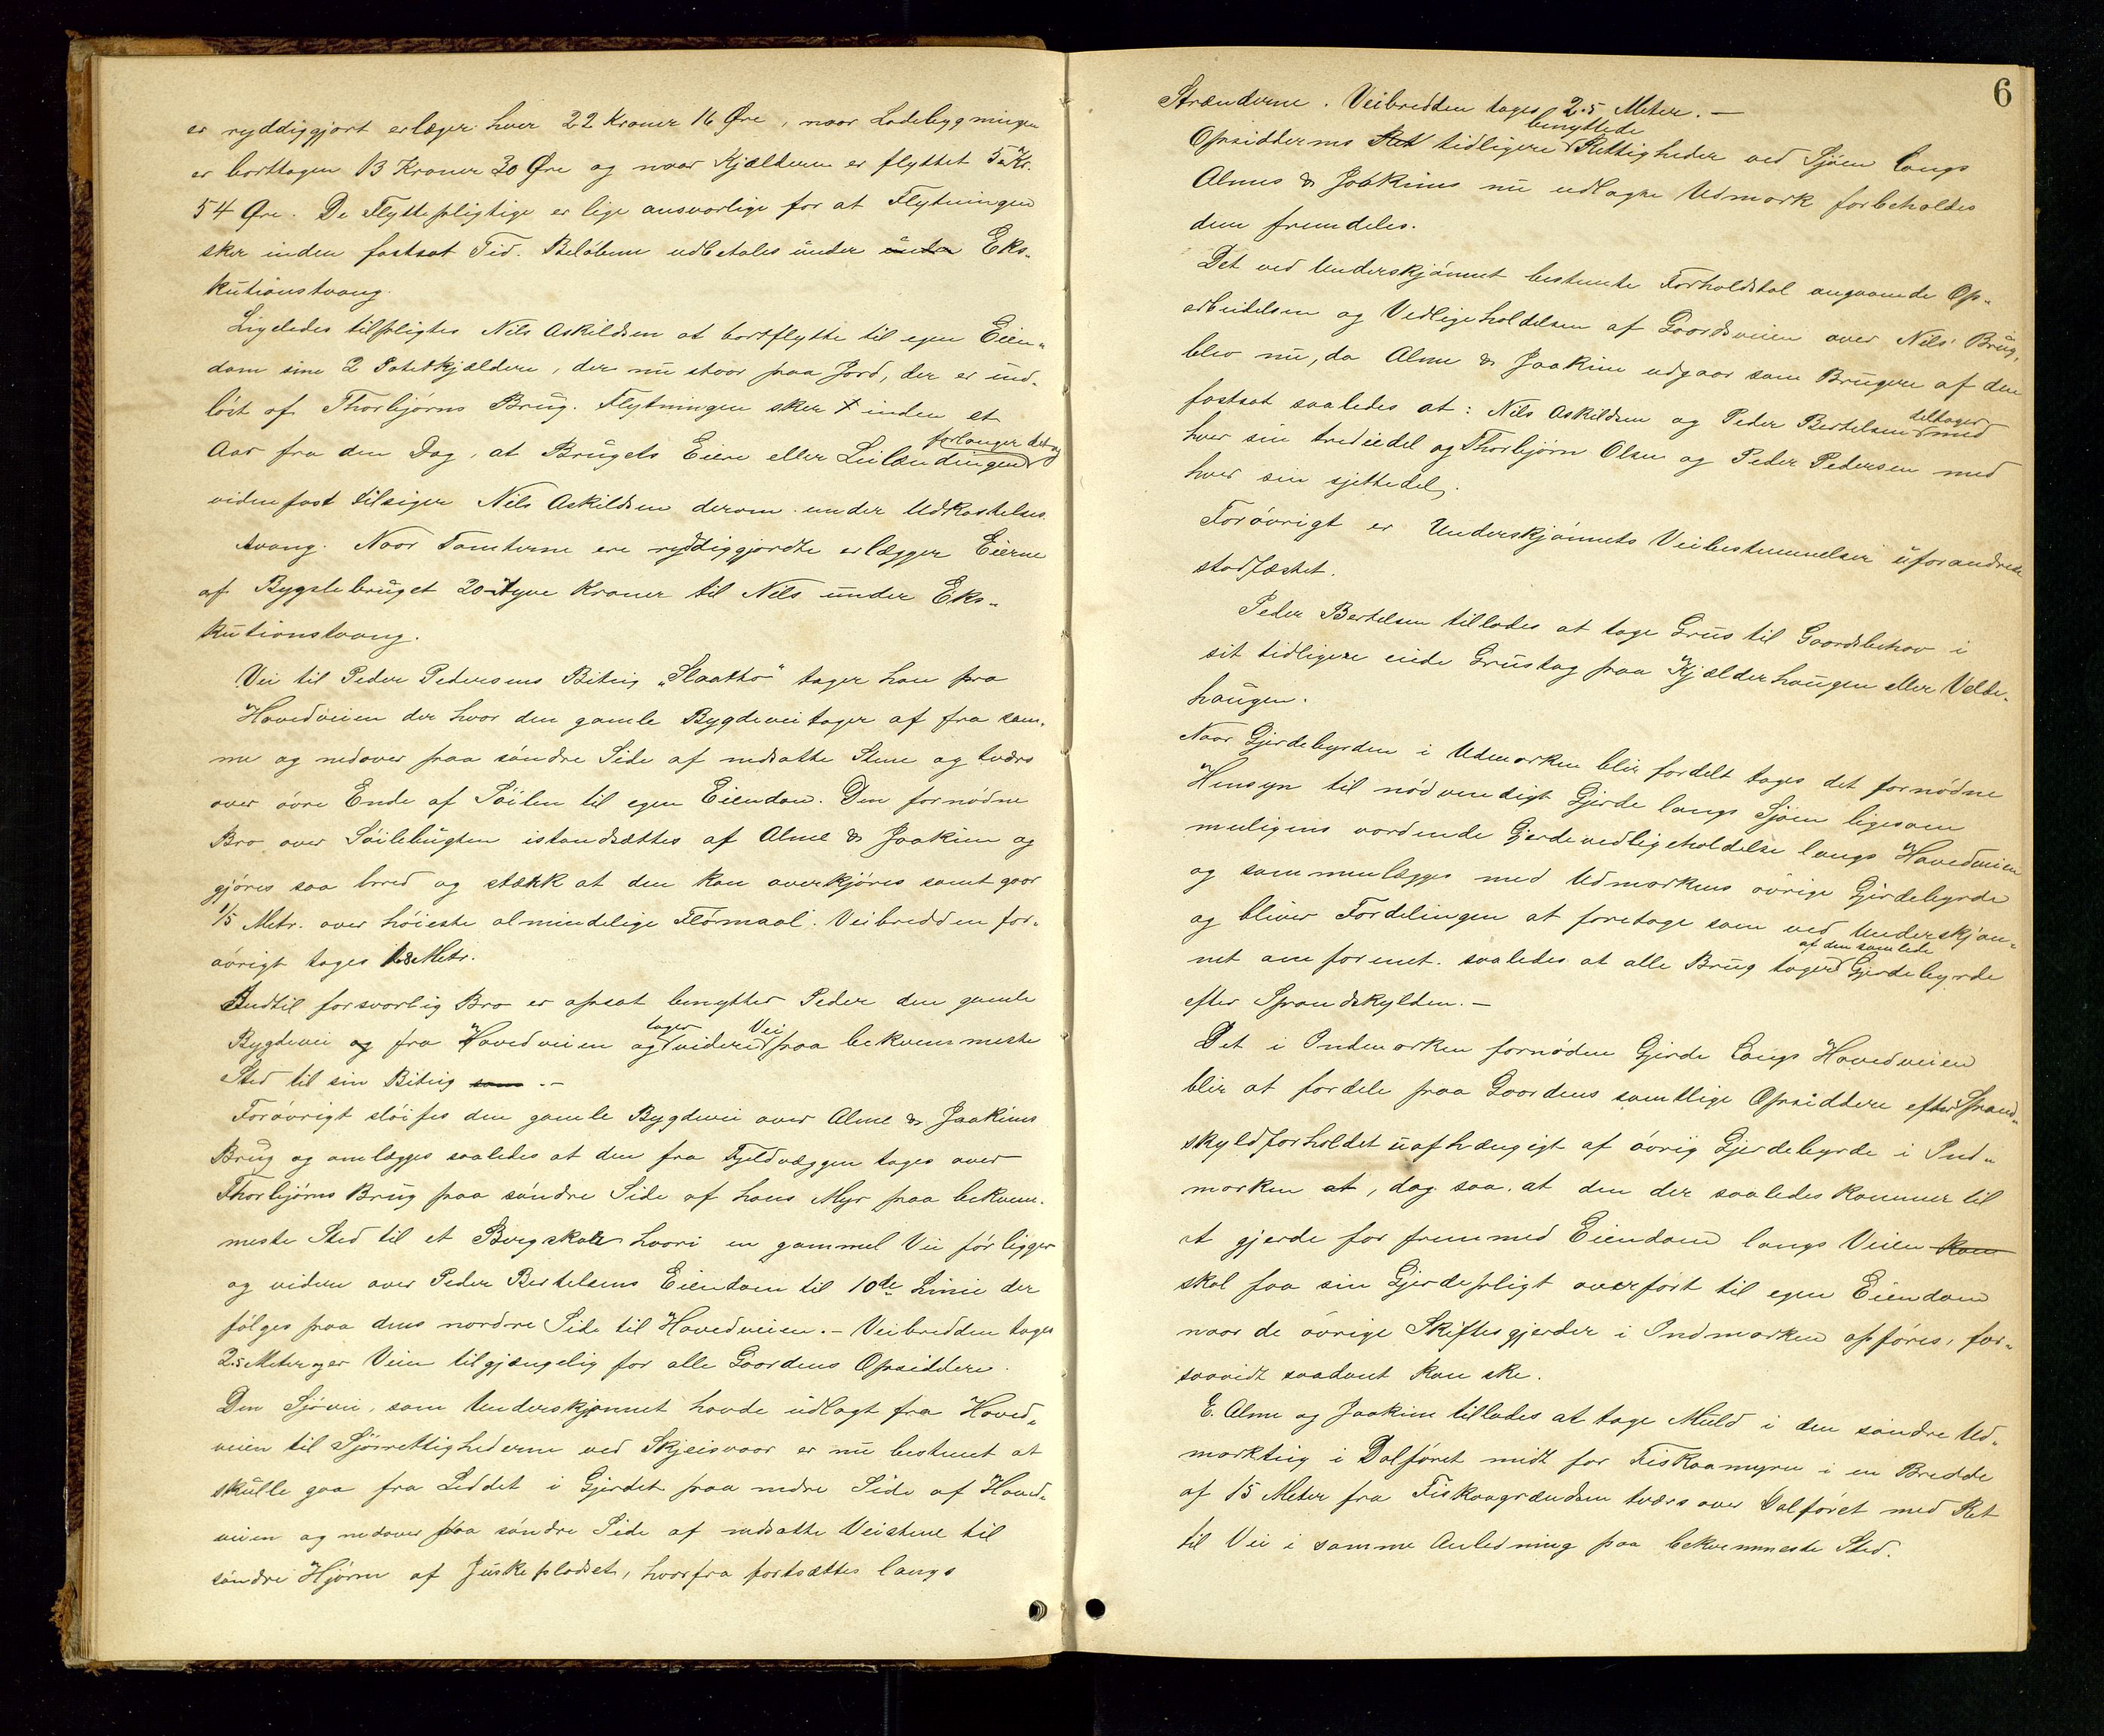 er ryddiggjort erlæger hver 22 Kroner 16 Øre, naar Ladebygningen
er borttagen 13 Kroner 30 Øre og naar Kjælderen er flyttet 5 Kr.
54 Øre. De Flyttepligtige er lige ansvarlige for at Flytningen
sker inden fastsat Tid. Beløbene udbetales under under Eks-
kutionstvang.
Ligeledes tilpligtes Nils Askildsen at bortflytte til egen Eien-
dom sine 2 Potetkjældere, der nu staar paa Jord, der er ind-
løst af Thorbjørns Brug. Flytningen sker inden et
Aar fra den Dag, at Brugets Eiere eller Leilændingen forlanger det og
vidnefast tilsiger Nils Askildsen derom under Udkastelses
tvang. Naar Tomterne ere ryddiggjordte erlægger Eierne
af Bygslebruget 20 - tyve Kroner til Nils under Eks-
kutionstvang.
Vei til Peder Pedersens Biteig „Slaatto" tager han fra
Hovedveien der hvor den gamle Bygdevei tager af fra sam-
me og nedover paa søndre Side af nedsatte Stene og tværs
over øvre Ende af Søilen til egen Eiendom. Den fornødne
Bro over Søilebugten istandsættes af Alme & Joakim og
gjøres saa bred og stærk at den kan overkjøres samt gaar
1/5 Metr. over høieste almindelige Flormaal. Veibredden for-
øvrigt tages 1.8 Metr.
Indtil forsvarlig Bro er opsat benytter Peder den gamle
Bygdevei og fra Hovedveien og tager videre Vei paa bekvemmeste
Sted til sin Biteig som .-
Forøvrigt sløifes den gamle Bygdevei over Alme & Joakims
Brug og omlægges saaledes at den fra Fjeldvæggen tages over
Thorbjørns Brug paa søndre Side af hans Myr paa bekvem-
meste Sted til et Bergskar hvori en gammel Vei før ligger
og videre over Peder Bertelsens Eiendom til 10de Linie der
følges paa dens nordre Side til Hovedveien. - Veibredden tages
2.5 Meter og er Veien tilgjængelig for alle Gaardens Opsiddere.
Den Sjøvei, som Underskjønnet havde udlagt fra Hoved-
veien til Sjørettighederne ved Skjeisvaar er nu bestemt at
skulle gaa fra Leddet i Gjerdet paa nedre Side af Hoved-
veien og nedover paa søndre Side af nedsatte Veistene til
søndre Hjørne af Juskepladset, hvorfra fortsættes langs
6
Strænderne. Veibredden tages 2.5 Meter. -
Opsiddernes Ret tidligere benyttede Rettigheder ved Sjøen langs
Almes & Joakims nu udlagte Udmark forbeholdes
dem fremdeles.
Det ved Underskjønnet bestemte Forholdstal angaaende Op-
arbeidelsen og Vedligeholdelsen af Gaardsveien over Nils' Brug,
blev nu, da Alme & Joakim udgaar som Brugere af den
fastsat saaledes at: Nils Askildsen og Peder Bertelsen deltager med
hver sin trediedel og Thorbjørn Olsen og Peder Pedersen med
hver sin sjettedel.
Forøvrigt er Underskjønnets Veibestemmelser uforandrede
stadfæstet.
Peder Bertelsen tillades at tage Grus til Gaardsbehov i
sit tidligere eiede Grustag paa Kjælderhaugen eller Velte-
haugen.
Naar Gjerdebyrden i Udmarken blir fordelt tages det fornødne
Hensyn til nødvendigt Gjerde langs Sjøen ligesom
muligens vordende Gjerdevedligeholdelse langs Hovedveien
og sammenlægges med Udmarkens øvrige Gjerdebyrde
og bliver Fordelingen at foretage som ved Underskjøn-
net omformet. saaledes at alle Brug tager af den samlede Gjerdebyrde
efter Spandskylden. -
Det i Indmarken fornødne Gjerde langs Hovedveien
blir at fordele paa Gaardens samtlige Opsiddere efter Spand-
skyldforholdet uafhængigt af øvrig Gjerdebyrde i Ind-
marken at, dog saa. at den der saaledes kommer til
at gjerde for fremmed Eiendom langs Veien kan
skal faa sin Gjerdepligt overført til egen Eiendom
naar de øvrige Skiftesgjerder i Indmarken opføres, for-
saavidt saadant kan ske.
E. Alme og Joakim tillades at tage Muld i den søndre Ud-
markteig i Dalføret midt for Fiskaamyren i en Bredde
af 15 Meter fra Fiskaagrændsen tværs over Dalføret med Ret
til Vei i samme Anledning paa bekvemmeste Sted.